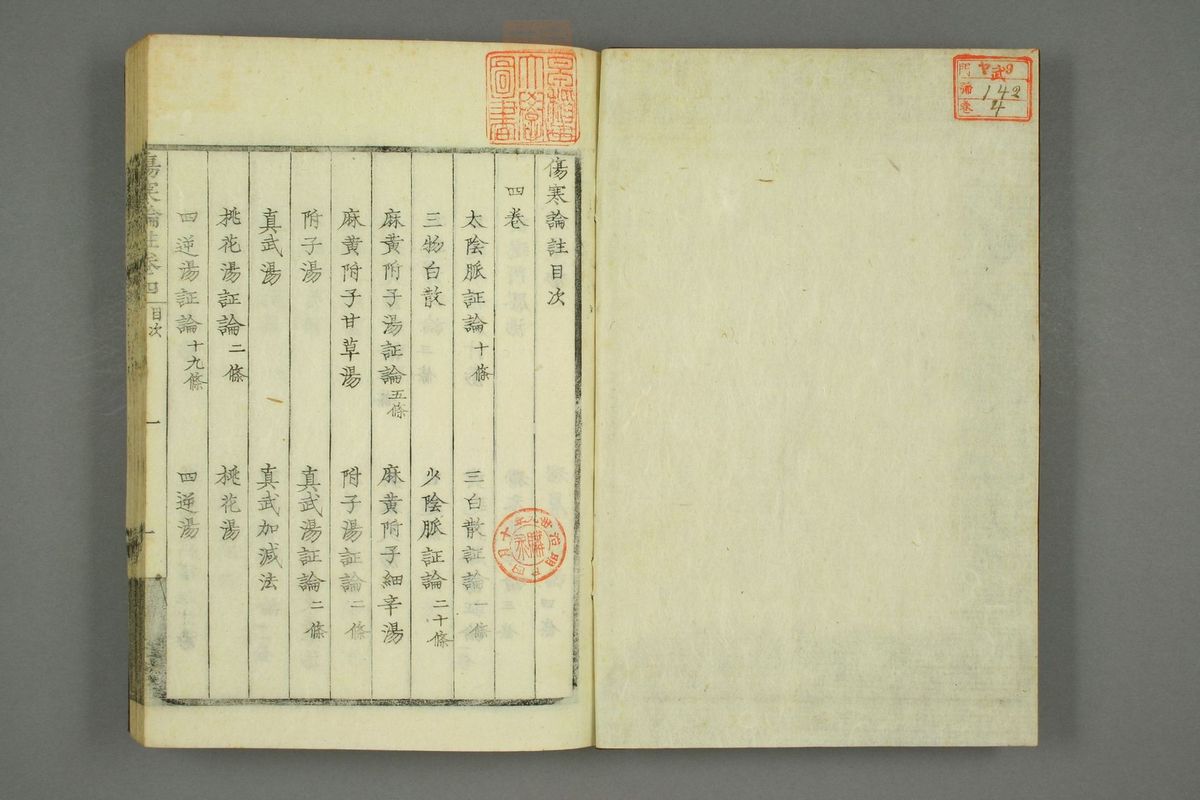 傷寒論註目次
四卷
太陰脈証論十條
三白散証論一條
三物白散
少陰脈証論二十條
麻黄附子湯証論五條
麻黄附子細辛湯
麻黄附子甘草湯
附子湯証論二條
附子湯
真武湯証論二條
真武湯
真武加減法
桃花湯証論二條
桃花湯
四逆湯証論十九條
四逆湯
傷寒論註卷四
目次
一
圖書
門
武
142
卷
4